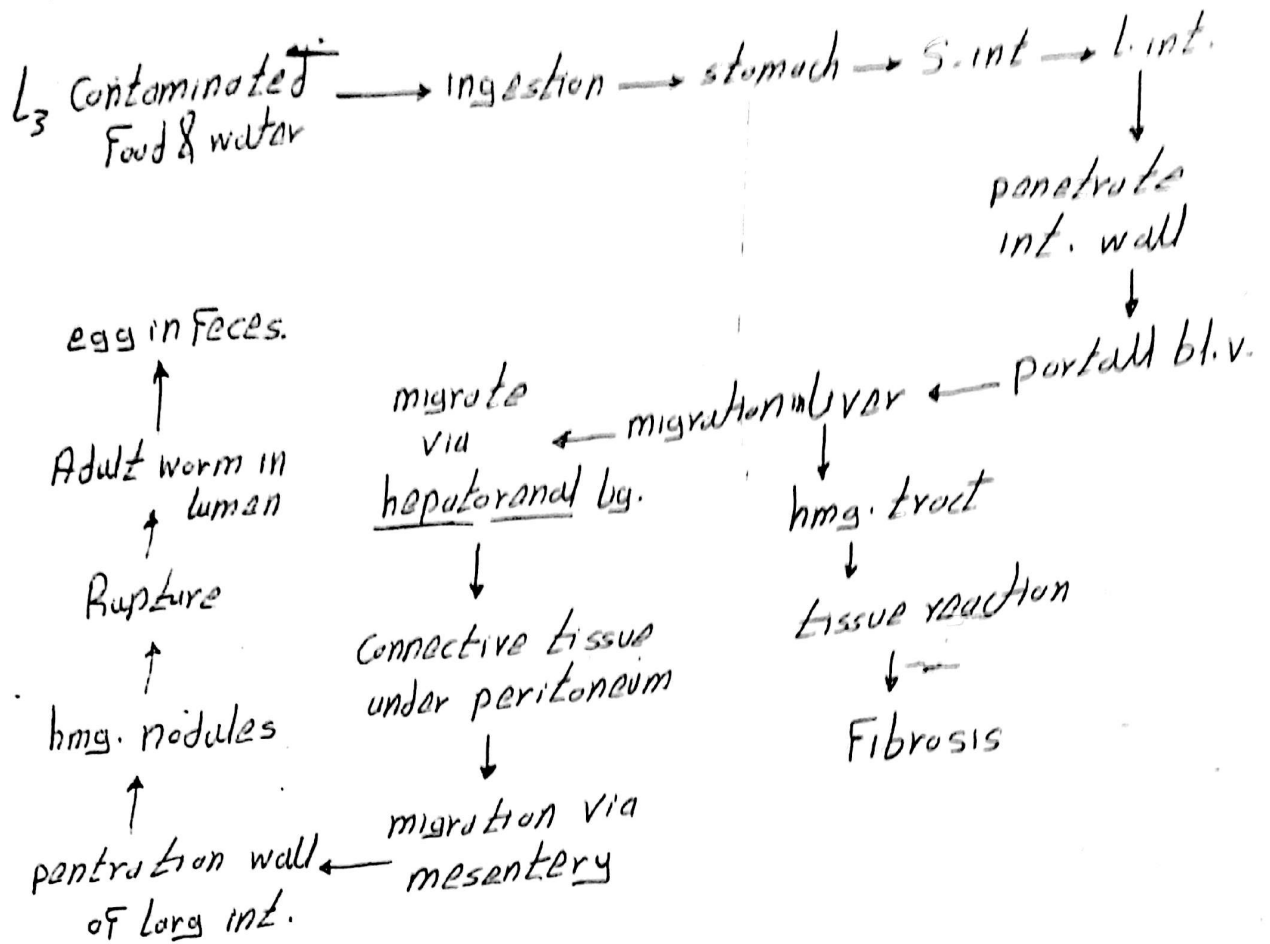 L3 Contaminated → ingestion → stomach → S.int → l.int.
Food & water
↓
penetrate
int. wall
↓
portall bl.v.
← migration in liver ←
↓
hmg. tract
↓
tissue reaction
↓
Fibrosis
migrate
via
hepatorenal lig.
↓
Connective tissue
under peritoneum
↓
migration via
mesentery
←
pentration wall
of larg int.
↑
hmg. nodules
↑
Rupture
↑
Adult worm in
lumen
↑
egg in Feces.